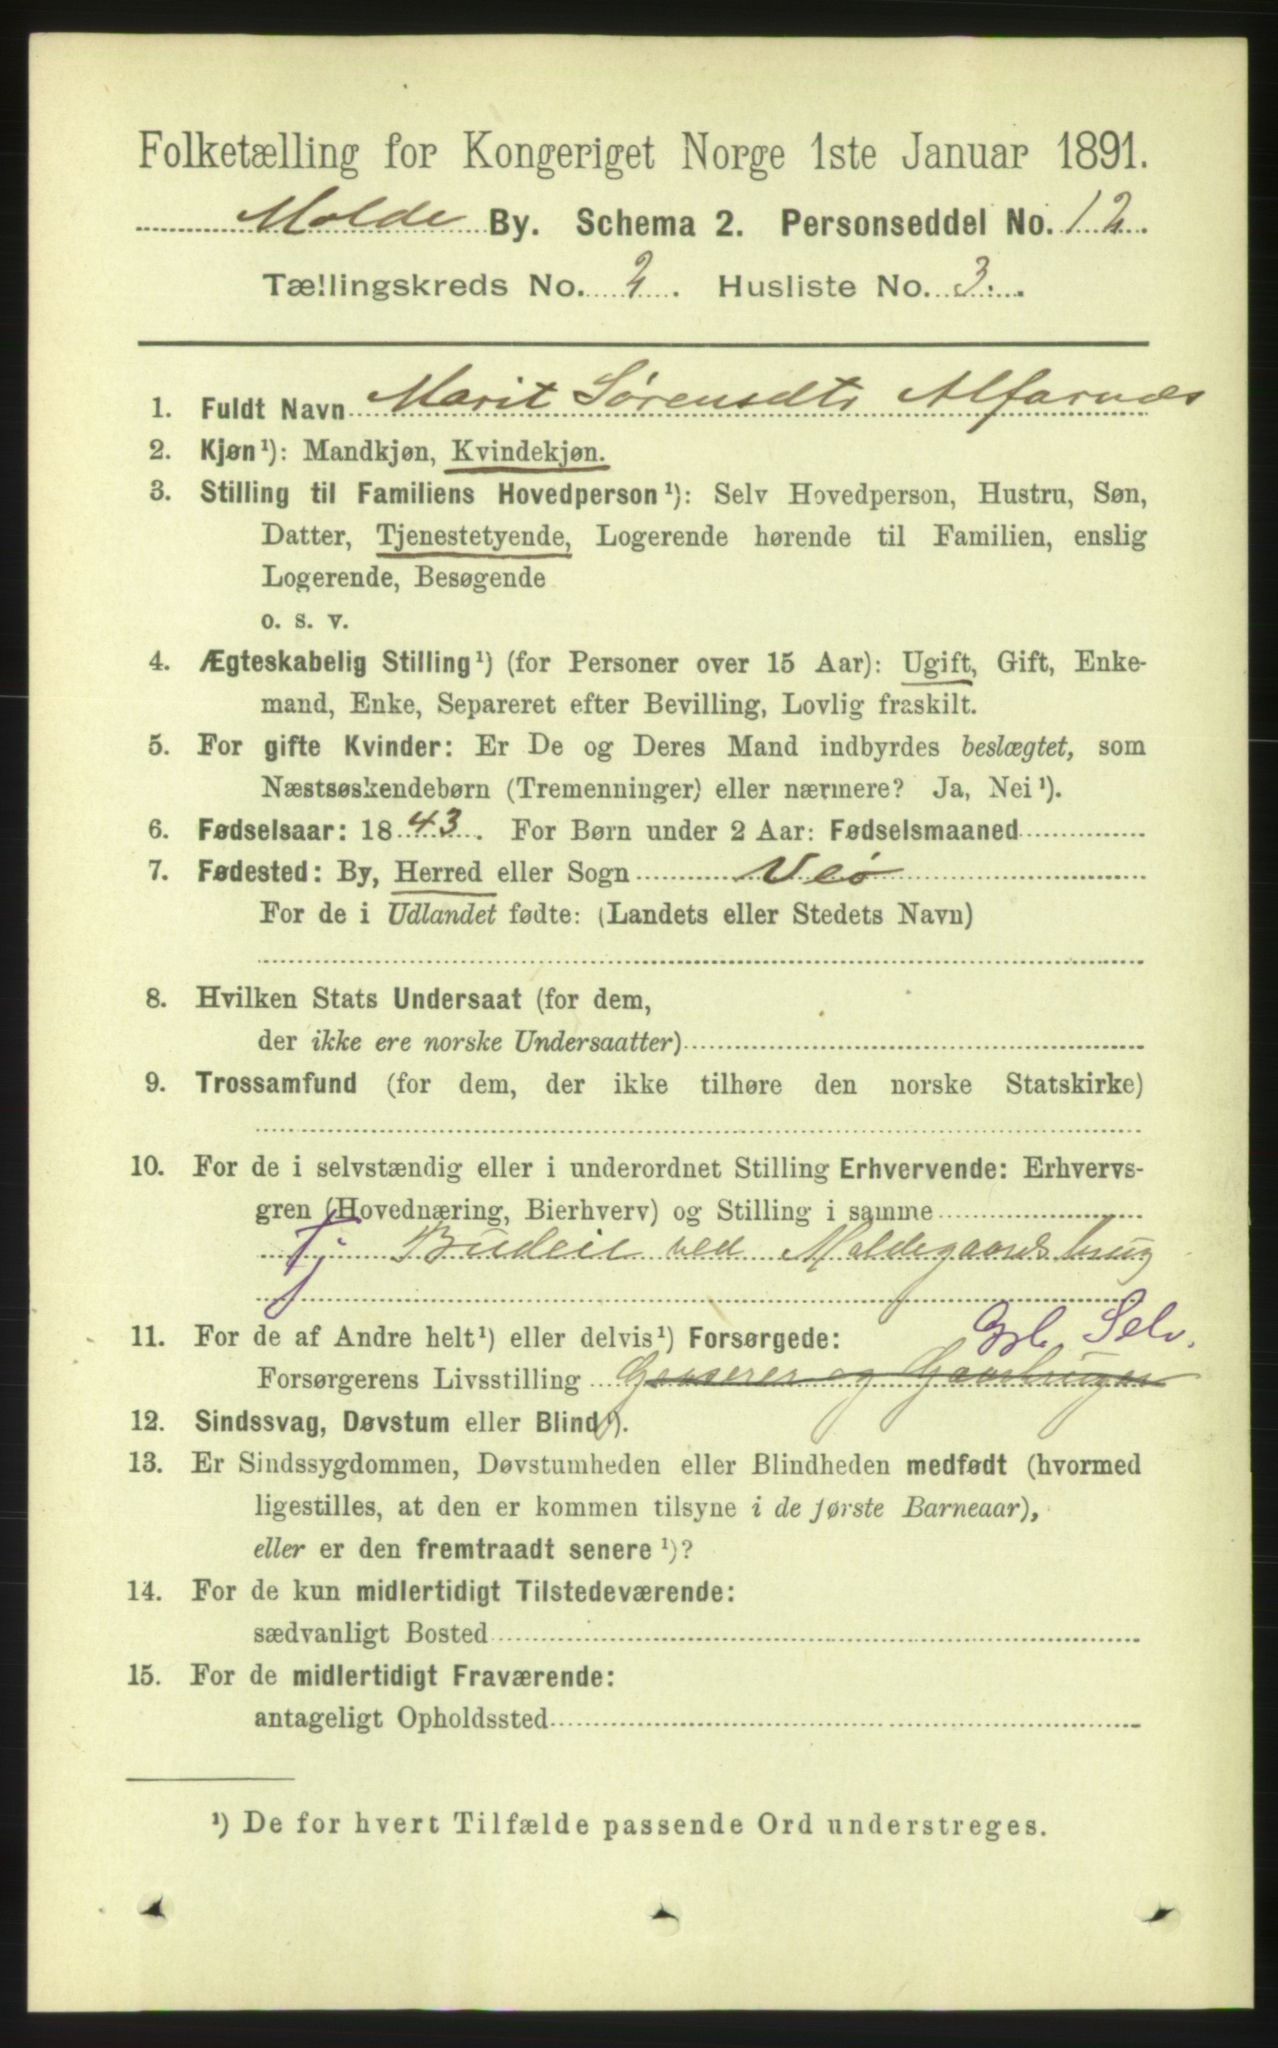 Folketælling for Kongeriget Norge 1ste Januar 1891.
Molde By. Schema 2. Personseddel No. 12.
Tællingskreds No. 2. Husliste No. 3.
1. Fuldt Navn Marit Sørensdtr Alfarnes
2. Kjøn¹): Mandkjøn, Kvindekjøn.
3. Stilling til Familiens Hovedperson¹): Selv Hovedperson, Hustru, Søn,
Datter, Tjenestetyende, Logerende hørende til Familien, enslig
Logerende, Besøgende
o. s. v.
4. Ægteskabelig Stilling¹) (for Personer over 15 Aar): Ugift, Gift, Enke-
mand, Enke, Separeret efter Bevilling, Lovlig fraskilt.
5. For gifte Kvinder: Er De og Deres Mand indbyrdes beslægtet, som
Næstsøskendebørn (Tremenninger) eller nærmere? Ja, Nei¹).
6. Fødselsaar: 1843. For Børn under 2 Aar: Fødselsmaaned
7. Fødested: By, Herred eller Sogn Veø
For de i Udlandet fødte: (Landets eller Stedets Navn)
8. Hvilken Stats Undersaat (for dem,
der ikke ere norske Undersaatter)
9. Trossamfund (for dem, der ikke tilhøre den norske Statskirke)
10. For de i selvstændig eller i underordnet Stilling Erhvervende: Erhvervs-
gren (Hovednæring, Bierhverv) og Stilling i samme
Tj Budeie ved Moldegaards brug
11. For de af Andre helt¹) eller delvis¹) Forsørgede: Selv.
Forsørgerens Livsstilling og Gaardbruger
12. Sindssvag, Døvstum eller Blind¹).
13. Er Sindssygdommen, Døvstumheden eller Blindheden medfødt (hvormed
ligestilles, at den er kommen tilsyne i de første Barneaar),
eller er den fremtraadt senere¹)?
14. For de kun midlertidigt Tilstedeværende:
sædvanligt Bosted
15. For de midlertidigt Fraværende:
antageligt Opholdssted
¹) De for hvert Tilfælde passende Ord understreges.